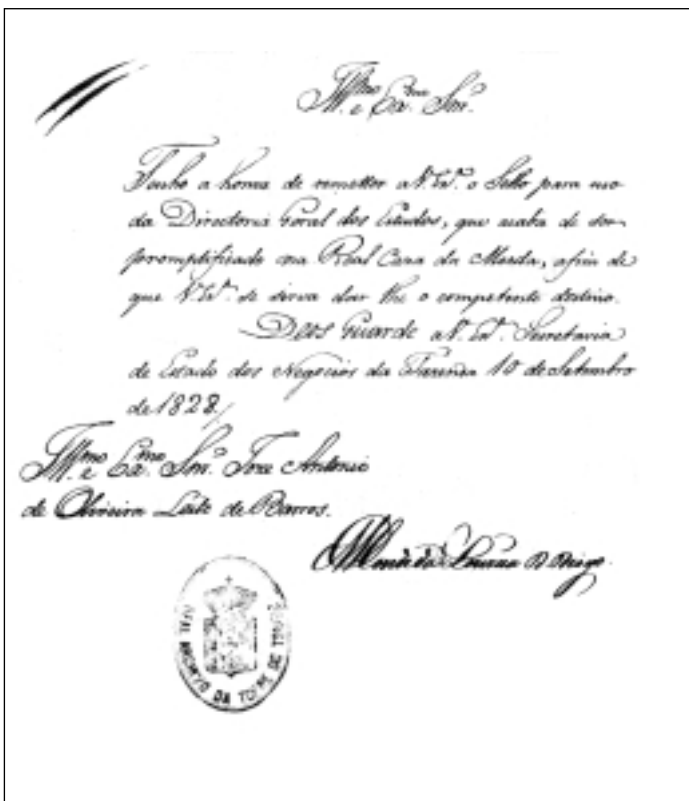 Ill.mo e Ex.mo Snr.
Tenho a honra de remetter a V. Ex.ª o Sello para uso
da Directoria Geral dos Estudos, que acaba de ser
promptificado na Real Caza da Moeda, afim de
que V. Ex.ª se sirva dar lhe o competente destino.
Deos Guarde a V. Ex.ª Secretaria
de Estado dos Negocios da Fazenda 10 de Setembro
de 1828
Ill.mo e Ex.mo Snr. Joze Antonio
de Oliveira Leite de Barros.
Conde da Louzaa D. Diogo
REAL ARCHIVO DA TORRE DE TOMBO